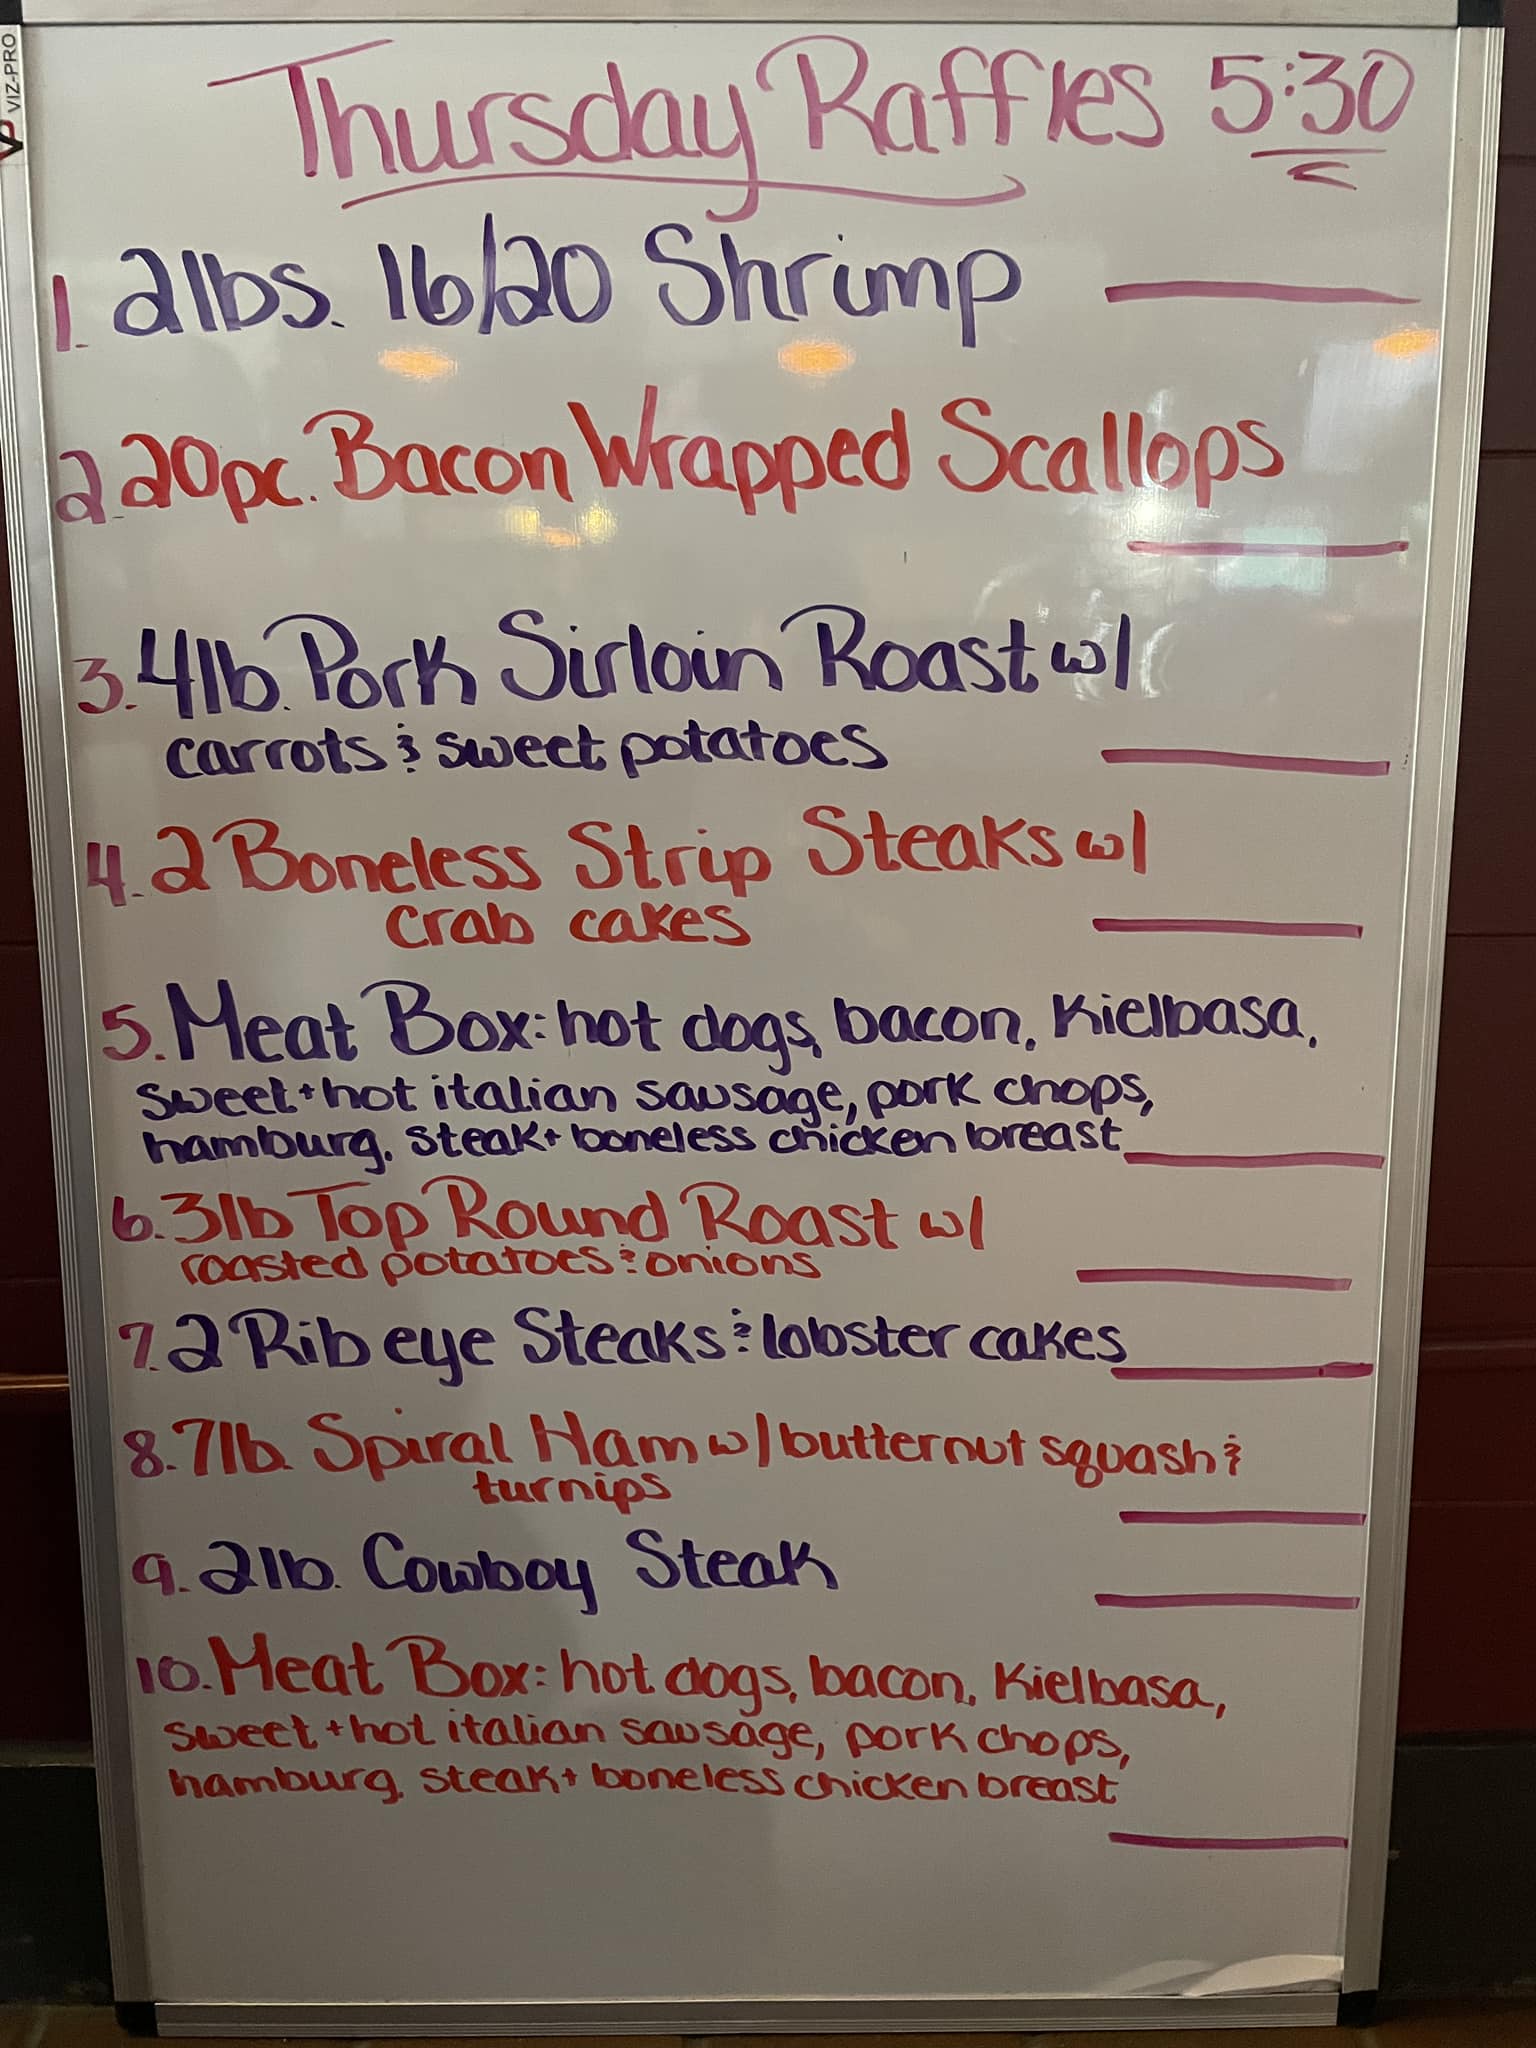 VIZ-PRO
Thursday Raffles 5:30
1. 2lbs. 16/20 Shrimp
2. 20pc. Bacon Wrapped Scallops
3. 4lb. Pork Sirloin Roast w/
carrots & sweet potatoes
4. 2 Boneless Strip Steaks w/
crab cakes
5. Meat Box: hot dogs, bacon, Kielbasa,
sweet + hot italian sausage, pork chops,
hamburg, steak + boneless chicken breast
6. 3lb Top Round Roast w/
roasted potatoes & onions
7. 2 Rib eye Steaks & lobster cakes
8. 7lb. Spiral Ham w/ butternut squash &
turnips
9. 2lb. Cowboy Steak
10. Meat Box: hot dogs, bacon, Kielbasa,
sweet + hot italian sausage, pork chops,
hamburg, steak + boneless chicken breast